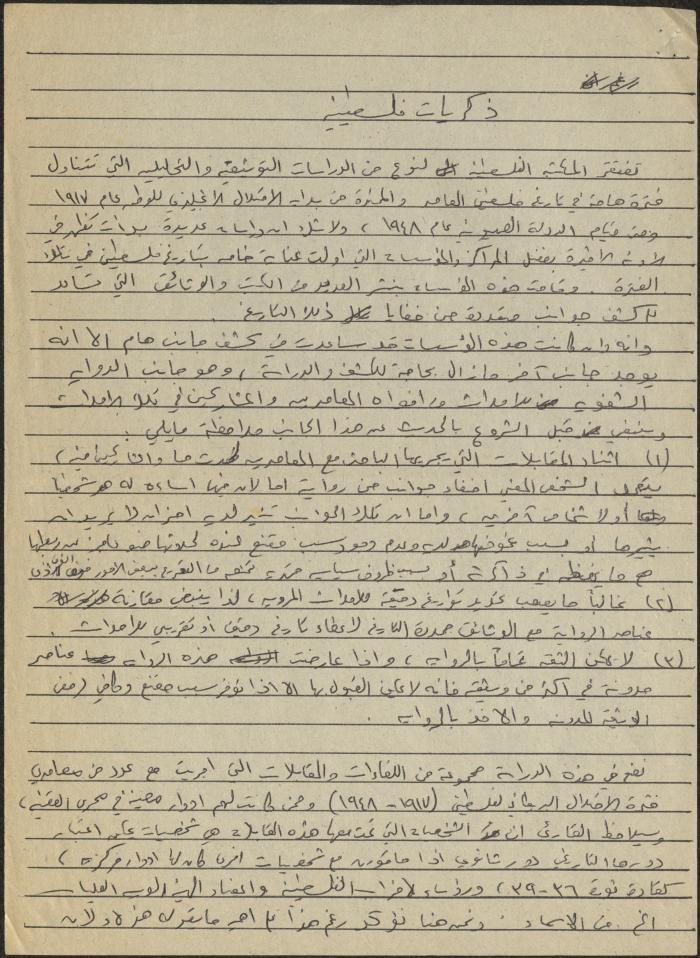 ذكريات فلسطينية
تفتقر المكتبة الفلسطينية لنوع من الدراسات التوثيقية والتحليلية التي تتناول
فترة هامة في تاريخ فلسطين المعاصر والممتدة من بداية الاحتلال الانجليزي للوطن عام ١٩١٧
وحتى قيام الدولة الصهيونية عام ١٩٤٨ ، ولا شك ان دراسات عديدة بدأت تظهر في
الآونة الاخيرة بفضل المراكز والمؤسسات التي اولت عناية خاصة بتاريخ فلسطين في تلك
الفترة . وقامت هذه المؤسسات بنشر العديد من الكتب والوثائق التي تساعد
لكشف جوانب متعددة من خفايا ذلك التاريخ .
وانه وان كانت هذه المؤسسات قد ساعدت في كشف جانب هام الا انه
يوجد جانب آخر ما زال بحاجة للكشف والدراسة ، وهو جانب الرواية
الشفوية للاحداث من افواه المعاصرين والمشاركين في تلك الاحداث
وينبغي قبل الشروع بالحديث عن هذا الجانب ملاحظة مايلي :
(١) اثناء المقابلات التي يجريها الباحث مع المعاصرين لحدث ما والمشاركين فيه ،
الشخص المعني اخفاء جوانب من روايته اما لان فيها اساءة له شخصيا
أو لأشخاص آخرين ، واما ان تلك الجوانب تثير لديه احزان لا يريد ان
يثيرها أو بسبب وعدم وجود سبب مقنع عنده
ما يحفظه في ذاكرته أو بسبب ظروف سياسية معينة تمنعه من التصريح ببعض الامور
(٢) غالباً ما يصعب تحديد تواريخ دقيقة للاحداث المروية ، لذا ينبغي مقارنة
عناصر الرواية مع الوثائق محددة التاريخ لاعطاء تاريخ دقيق أو تقريبي للاحداث .
(٣) لا يمكن الثقة تماماً بالرواية ، واذا عارضت هذه الرواية عناصر
مدونة في اكثر من وثيقة فانه لا يمكن القبول بها الا اذا توفر سبب مقنع وكافي لرفض
الوثيقة المدونة والاخذ بالرواية .
نضع في هذه الدراسة مجموعة من اللقاءات والمقابلات التي اجريت مع عدد من معاصري
فترة الاحتلال البريطاني لفلسطين (١٩١٧ - ١٩٤٨) وممن كانت لهم ادوار معينة في مجرى القضية ،
وسيلاحظ القارئ ان الشخصيات التي تمت معها هذه المقابلات هي شخصيات يمكن اعتبار
دورها التاريخي دور ثانوي اذا ما قورن مع شخصيات اخرى كان لها ادوار مركزية ،
كقادة ثورة ٣٦-٣٩ ، ورؤساء الاحزاب الفلسطينية واعضاء الهيئة العربية العليا
الخ من الاسماء . ونحن هنا نؤكد رغم هذا اهمية ما يقوله هؤلاء لان